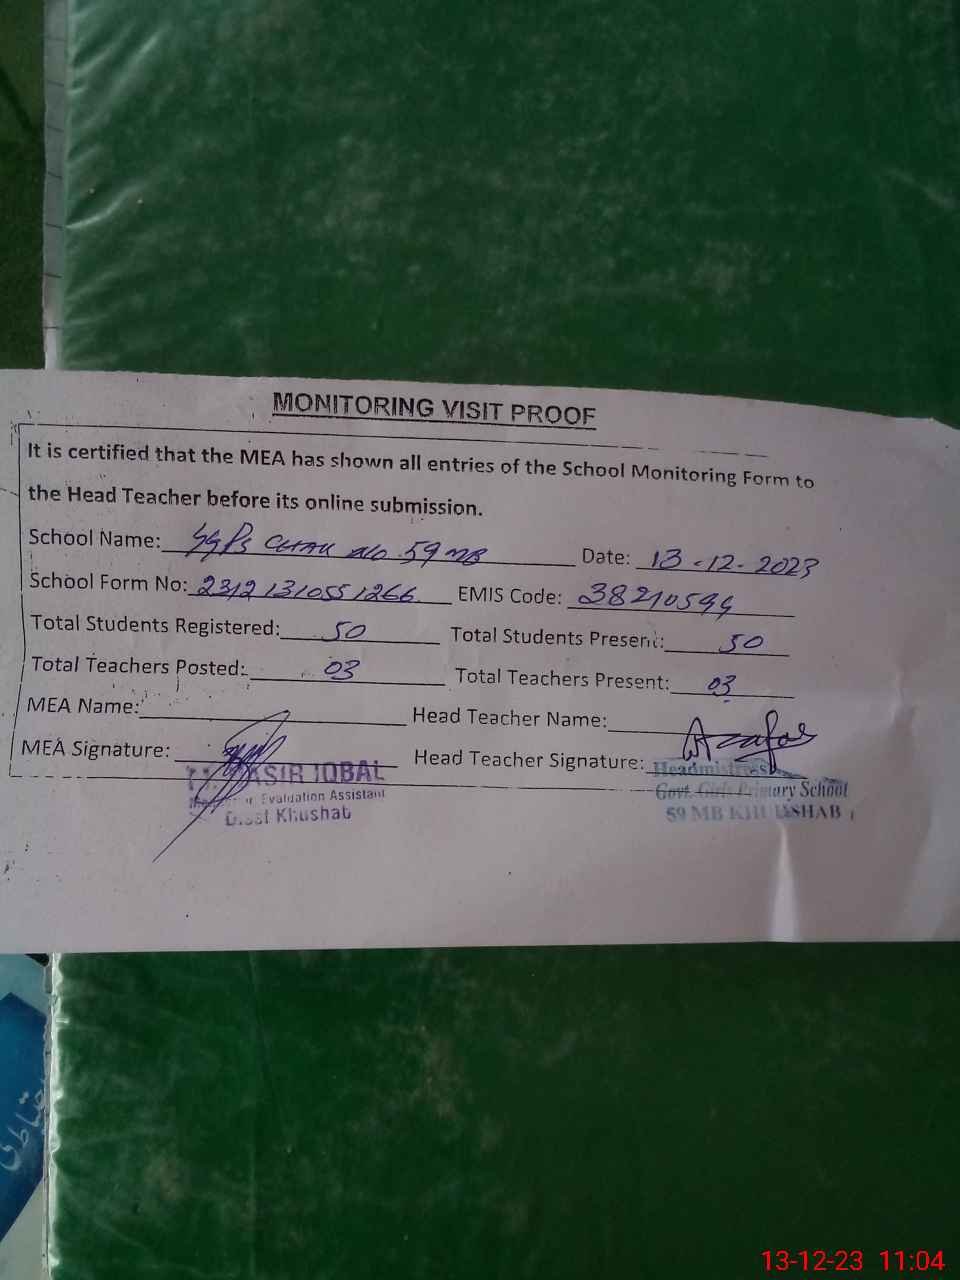 MONITORING VISIT PROOF
It is certified that the MEA has shown all entries of the School Monitoring Form to
the Head Teacher before its online submission.
School Name: GGPS CHAK NO 59 MB Date: 13-12-2023
School Form No: 23121310551266 EMIS Code: 38210594
Total Students Registered: 50 Total Students Present: 50
Total Teachers Posted: 03 Total Teachers Present: 03
MEA Name: Head Teacher Name:
MEA Signature: Head Teacher Signature:
IQBAL Headmistress
Evaluation Assistant Govt. Girls Primary School
Khushab 59 MB KHUSHAB
13-12-23 11:04